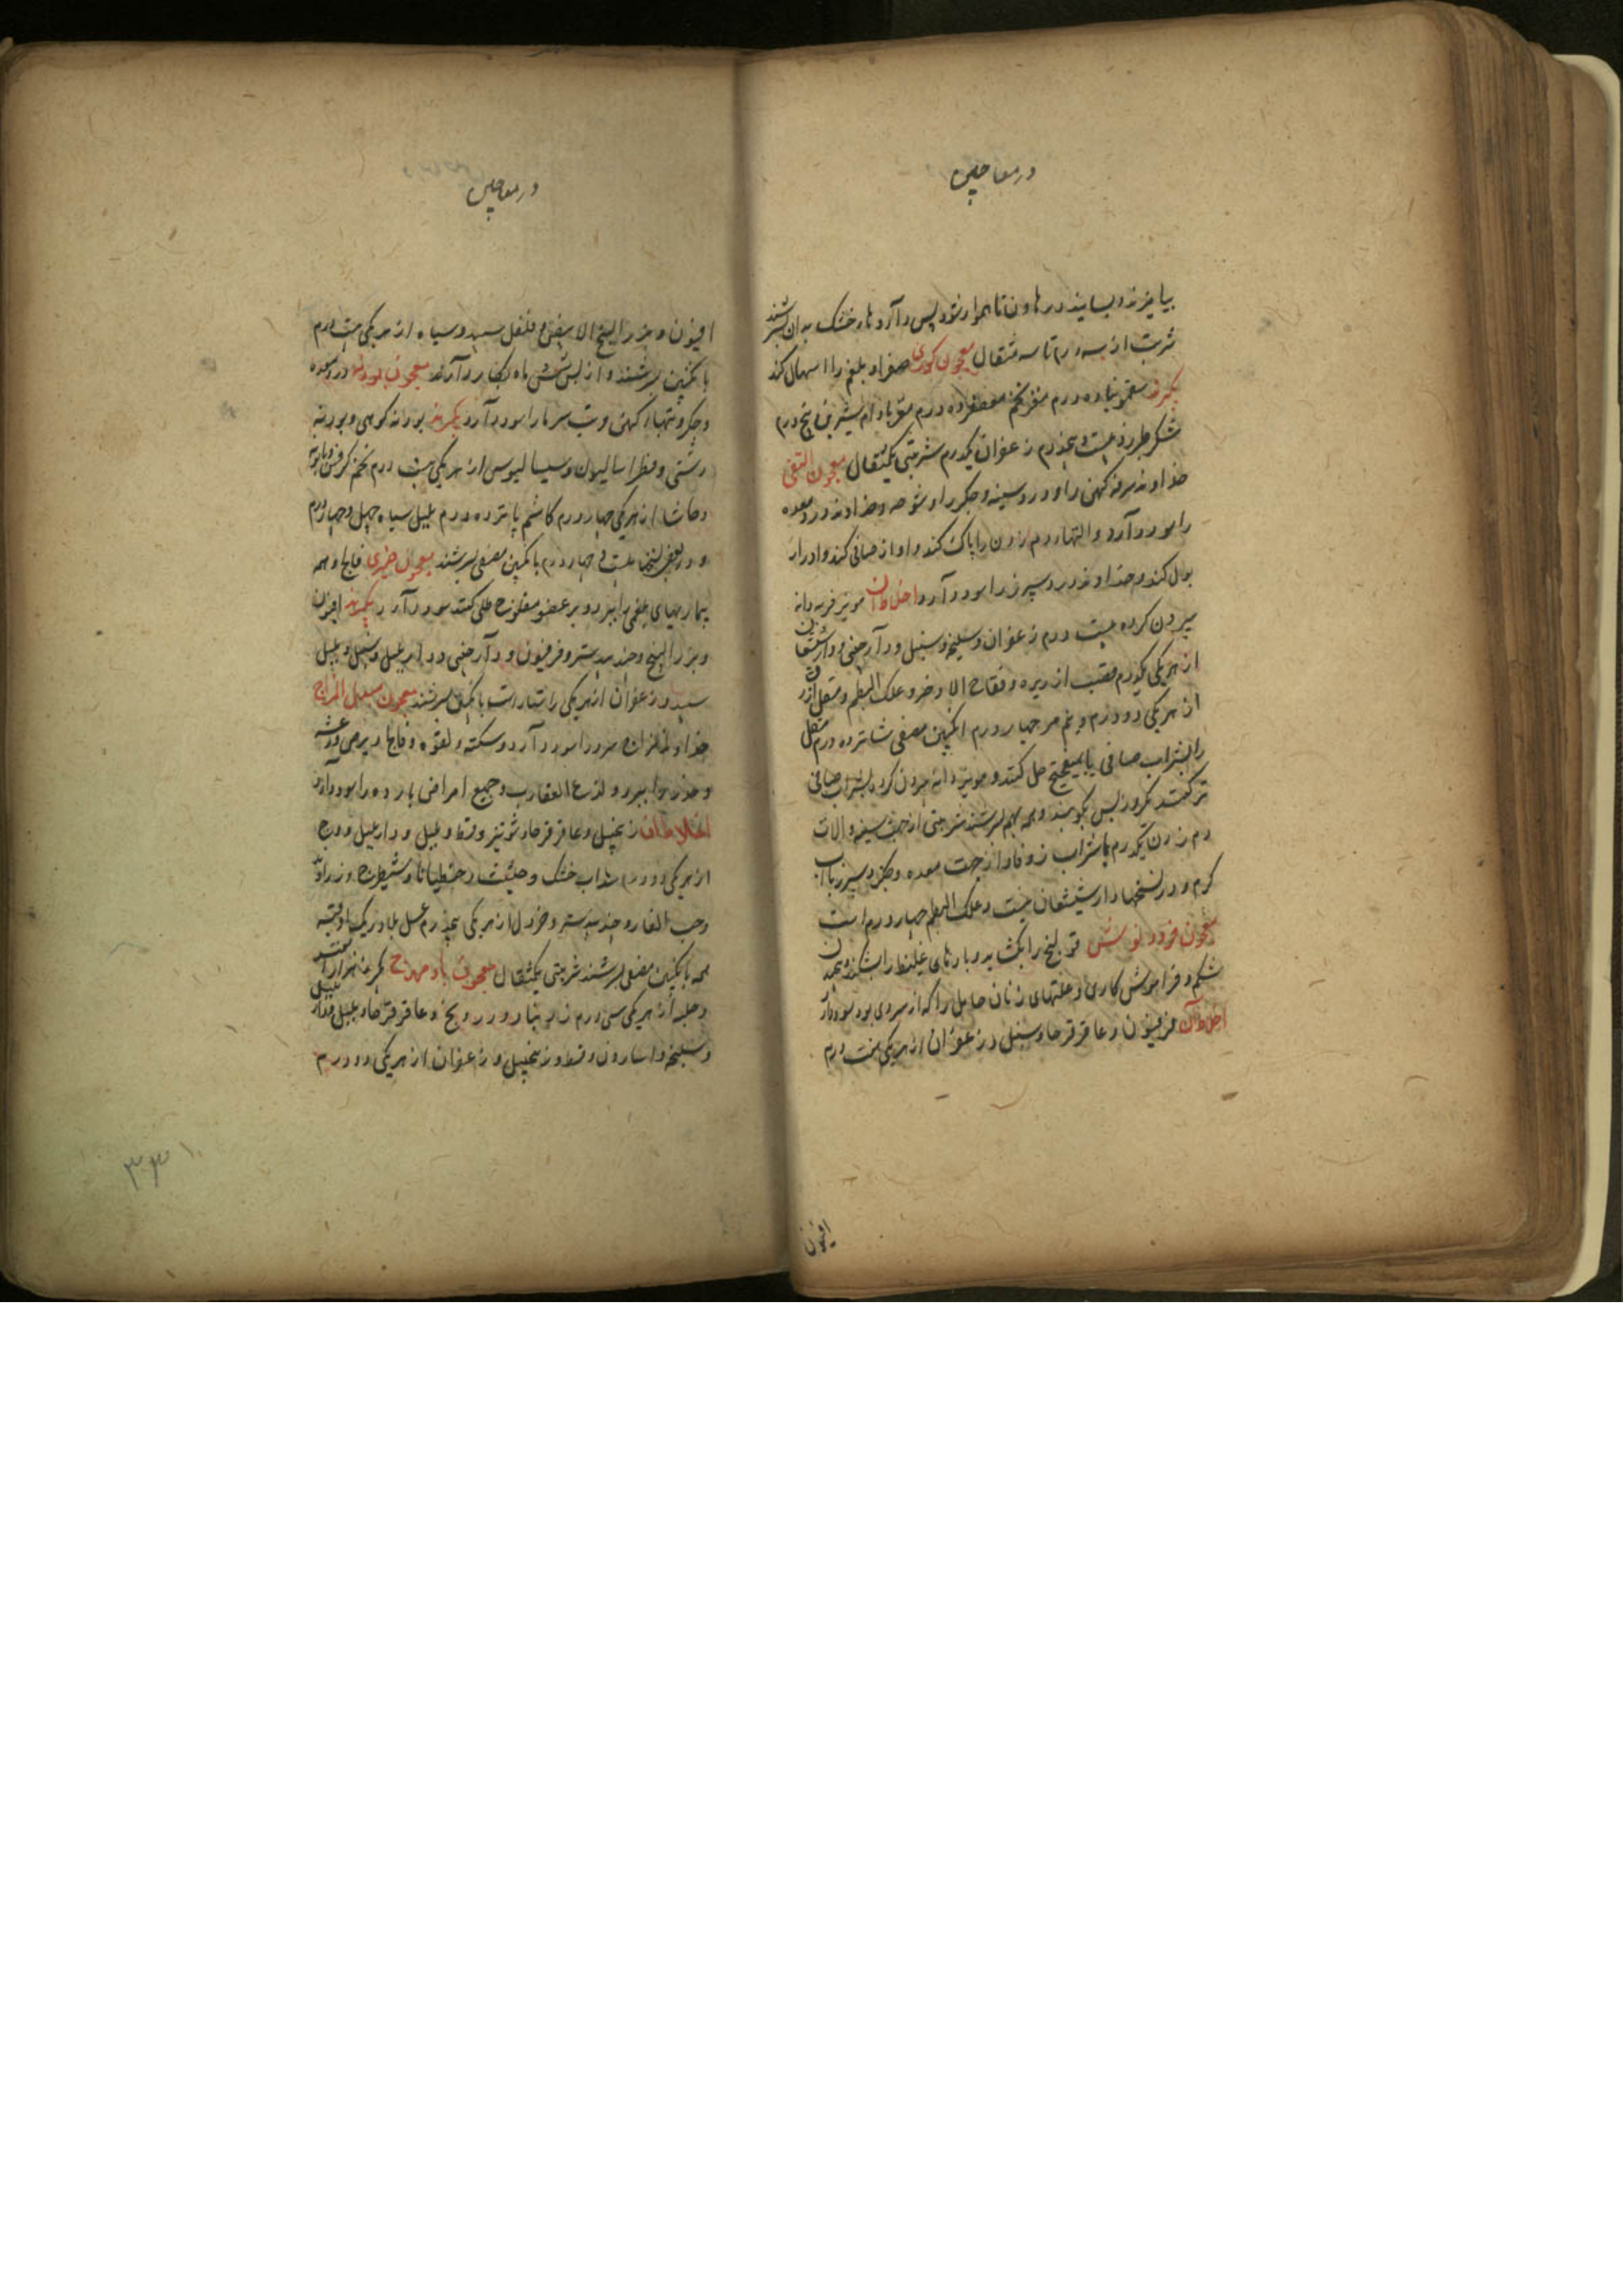 در معاجین
بیامیزند و بسایند در هاون تا هموار شود پس داروها خشک بدان بسرشند
شربت از سه درم تا سه مثقال معجون کوری صفرا و بلغم را اسهال کند
بگیرند سقمونیا ده درم مغز تخم معصفر ده درم مغز بادام شیرین پنج درم
شکر طبرزد بیست و پنجدرم زعفران یکدرم شربتی یکمثقال معجون القفی
خداوند سرفه کهن را و درد سینه و جگر را و شوصه و خداوند درد معده
را سود دارد والتهاء دم زدن را پاک کند و آواز صافی کند و ادرار
بول کند و خداوند درد سپرز را سود دارد اخلاط آن مویز فربه دانه
بیرون کرده بیست درم زعفران و سلیخه و سنبل و دارچینی و دارشیشعان
از هر یکی یکدرم قصب الذریره و فقاح الاذخر و علک البطم و مقل ازرق
از هر یکی دو درم و نیم مر چهار درم انگبین مصفی شانزده درم مقل
را بشراب صافی یا میپختج حل کنند و مویز دانه بیرون کرده بشراب صافی
تر کنند یکروز پس بکوبند و همه بهم بسرشند شربتی از جهت سینه و آلات
دم زدن یکدرم با شراب زوفا و از جهت معده و جگر و سپرز با آب
کرم و در نسخها دارشیشعان نیست و علک البطم چهار درم است
معجون فرودنوش قولنج را بکشاید و بادهای غلیظ را بشکند و پیچیدن
شکم و فراموش کاری و علتهای زنان حامل را که از سردی بود سود دارد
اخلاط آن فرفیون و عاقرقرحا و سنبل و زعفران از هر یکی هشت درم
افیون
در معاجین
افیون و بزر البنج الابیض و فلفل سپید و سیاه از هر یکی بیست درم
بانگبین بسرشند و از پس شش ماه بکار دارند معجون فودنه درد معده
و جگر و تبهاء کهن و تب سرما را سود دارد بگیرند پودنه کوهی و پودنه
دشتی و فطراسالیون و سیسالیوس از هر یکی بیست درم تخم کرفس و بابونه
و حاشا از هر یکی چهار درم کاشم پانزده درم پلپل سیاه چهل و چهار درم
و در بعضی نسخها بیست و چهار درم بانگبین مصفی بسرشند معجون خیری فالج و همه
بیماریهای بلغمی را ببرد و بر عضو مفلوج طلی کنند سود دارد بگیرند افیون
و بزر البنج و جندبیدستر و فرفیون و دارچینی و دارپلپل و سنبل و پلپل
سپید و زعفران از هر یکی راستاراست بانگبین بسرشند معجون مبدل المزاج
خداوند مزاج سرد را سود دارد و سکته و لقوه و فالج و برص و رعشه
و خدر را ببرد و لذع العقارب و جمیع امراض بارده را سود دارد
اخلاط آن زنجبیل و عاقرقرحا و شونیز و قسط و پلپل و دارپلپل و وج
از هر یکی ده درم سداب خشک و حلتیت و جنطیانا و شیطرج و زراوند
و حب الغار و جندبیدستر و خردل از هر یکی پنجدرم عسل بلادر یک اوقیه
همه بانگبین مصفی بسرشند شربتی یکمثقال معجون بادمهراج بگیرند هزار اسفند
و حلبه از هر یکی سی درم زرنباد و درونج و عاقرقرحا و پلپل و دارپلپل
و سلیخه و اسارون و قسط و زنجبیل و زعفران از هر یکی دو درم
۳۳۱